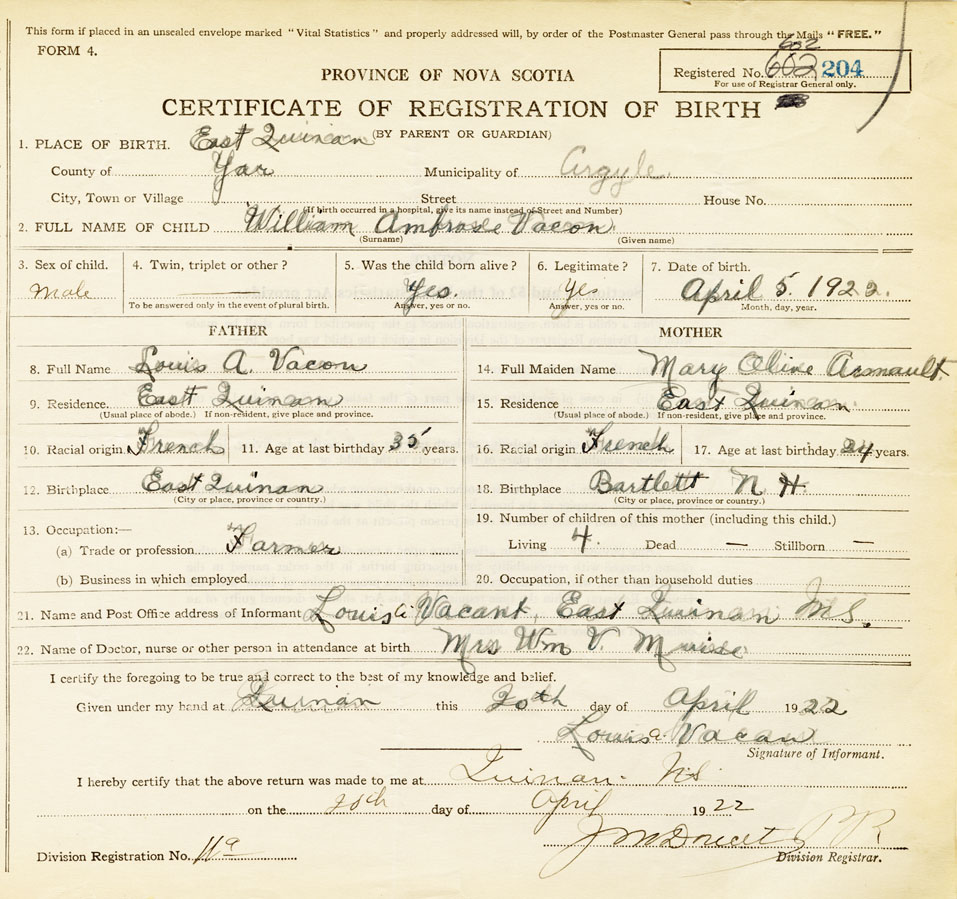 This form if placed in an unsealed envelope marked "Vital Statistics" and properly addressed will, by order of the Postmaster General pass through the Mails "FREE."
FORM 4.
602
PROVINCE OF NOVA SCOTIA
Registered No. 602 204
For use of Registrar General only.
CERTIFICATE OF REGISTRATION OF BIRTH
(BY PARENT OR GUARDIAN)
1. PLACE OF BIRTH. East Quinan
County of Yar Municipality of Argyle
City, Town or Village Street House No.
(If birth occurred in a hospital, give its name instead of Street and Number)
2. FULL NAME OF CHILD William Ambrose Vacon
(Surname) (Given name)
3. Sex of child. 4. Twin, triplet or other? 5. Was the child born alive? 6. Legitimate? 7. Date of birth.
Male — Yes. Yes April 5. 1922.
To be answered only in the event of plural birth. Answer, yes or no. Answer, yes or no. Month, day, year.
FATHER MOTHER
8. Full Name Louis A. Vacon 14. Full Maiden Name Mary Olive
9. Residence. East Quinan 15. Residence East Quinan.
(Usual place of abode.) If non-resident, give place and province. (Usual place of abode.) If non-resident, give place and province.
10. Racial origin French 11. Age at last birthday 35 years. 16. Racial origin French 17. Age at last birthday 24 years.
12. Birthplace East Quinan 18. Birthplace Bartlett N. H.
(City or place, province or country.) (City or place, province or country.)
13. Occupation:— 19. Number of children of this mother (including this child.)
(a) Trade or profession Farmer Living 4. Dead — Stillborn —
(b) Business in which employed 20. Occupation, if other than household duties
21. Name and Post Office address of Informant Louis a Vacant, East Quinan N.S.
22. Name of Doctor, nurse or other person in attendance at birth Mrs Wm V. Muise
I certify the foregoing to be true and correct to the best of my knowledge and belief.
Given under my hand at Quinan this 20th day of April 1922
Louis a Vacan
Signature of Informant.
I hereby certify that the above return was made to me at Quinan. N.S.
on the 20th day of April 1922
Division Registration No. 11a
Division Registrar.